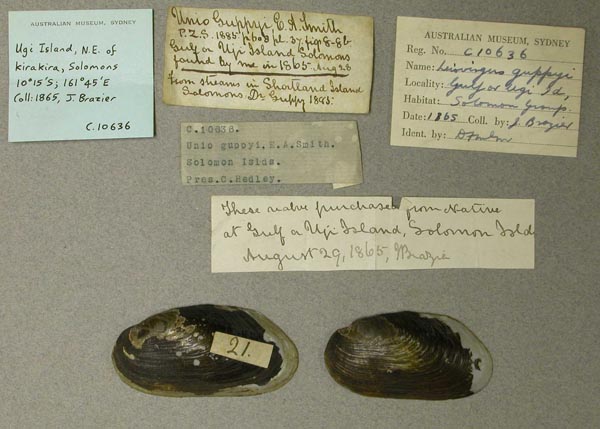 AUSTRALIAN MUSEUM, SYDNEY
Ugi Island, N.E. of
Kirakira, Solomons
10°15'S; 161°45'E
Coll: 1865, J. Brazier
C.10636
Unio Guppyi E A. Smith
P.Z.S. 1885 p608 pl. 37 fig 8-8b
Gulf or Uji Island Solomons
found by me in 1865. Aug 28
From streams in Shortland Island
Solomons. Dr Guppy 1885.
AUSTRALIAN MUSEUM, SYDNEY
Reg. No. C10636
Name: guppyi
Locality: Gulf or Ugi Id,
Habitat: Solomon Group.
Date: 1865 Coll. by: J. Brazier
Ident. by:
C.10636.
Unio guppyi, E.A.Smith.
Solomon Islds.
Pres.C.Hedley.
These valve purchased from Native
at Gulf or Uji Island, Solomon Isld
August 29, 1865, J Brazier
21.